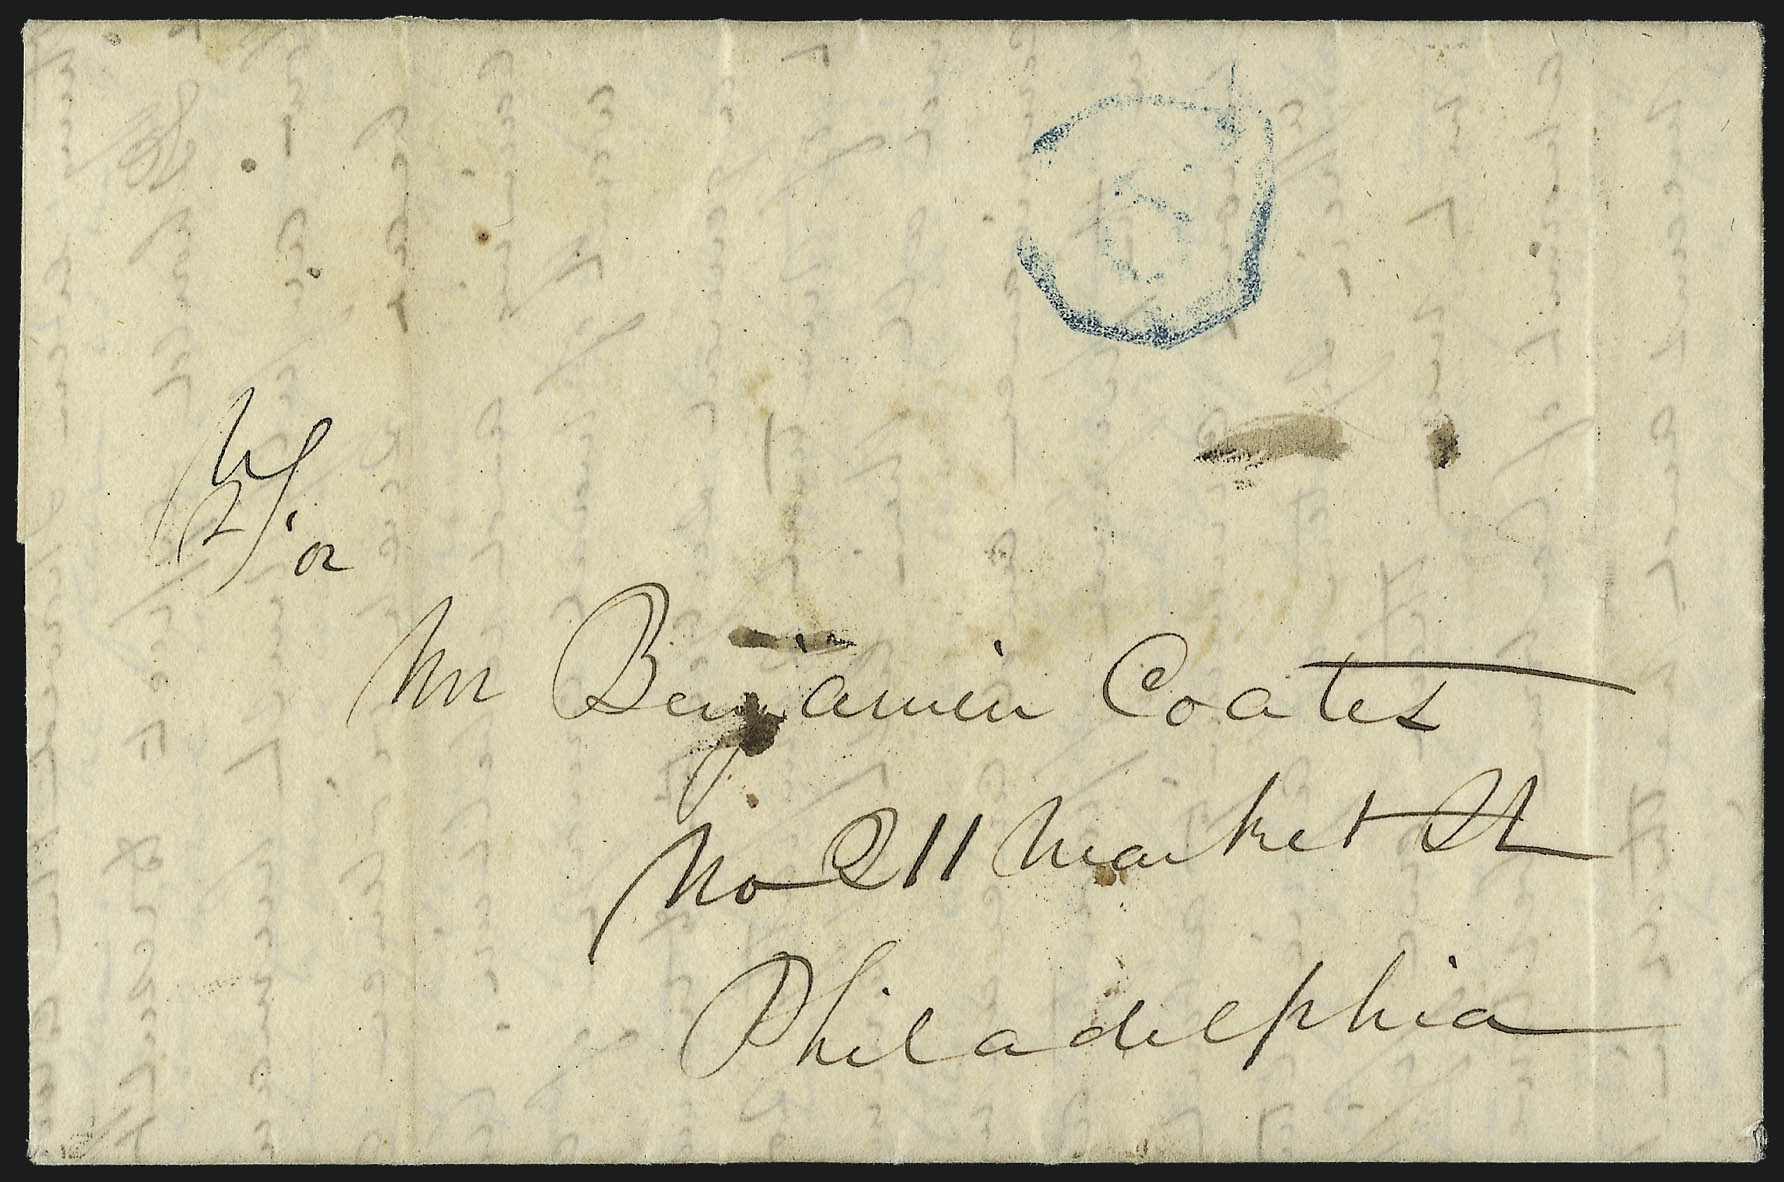 Mr Benjamin Coates
No 211 Market St
Philadelphia